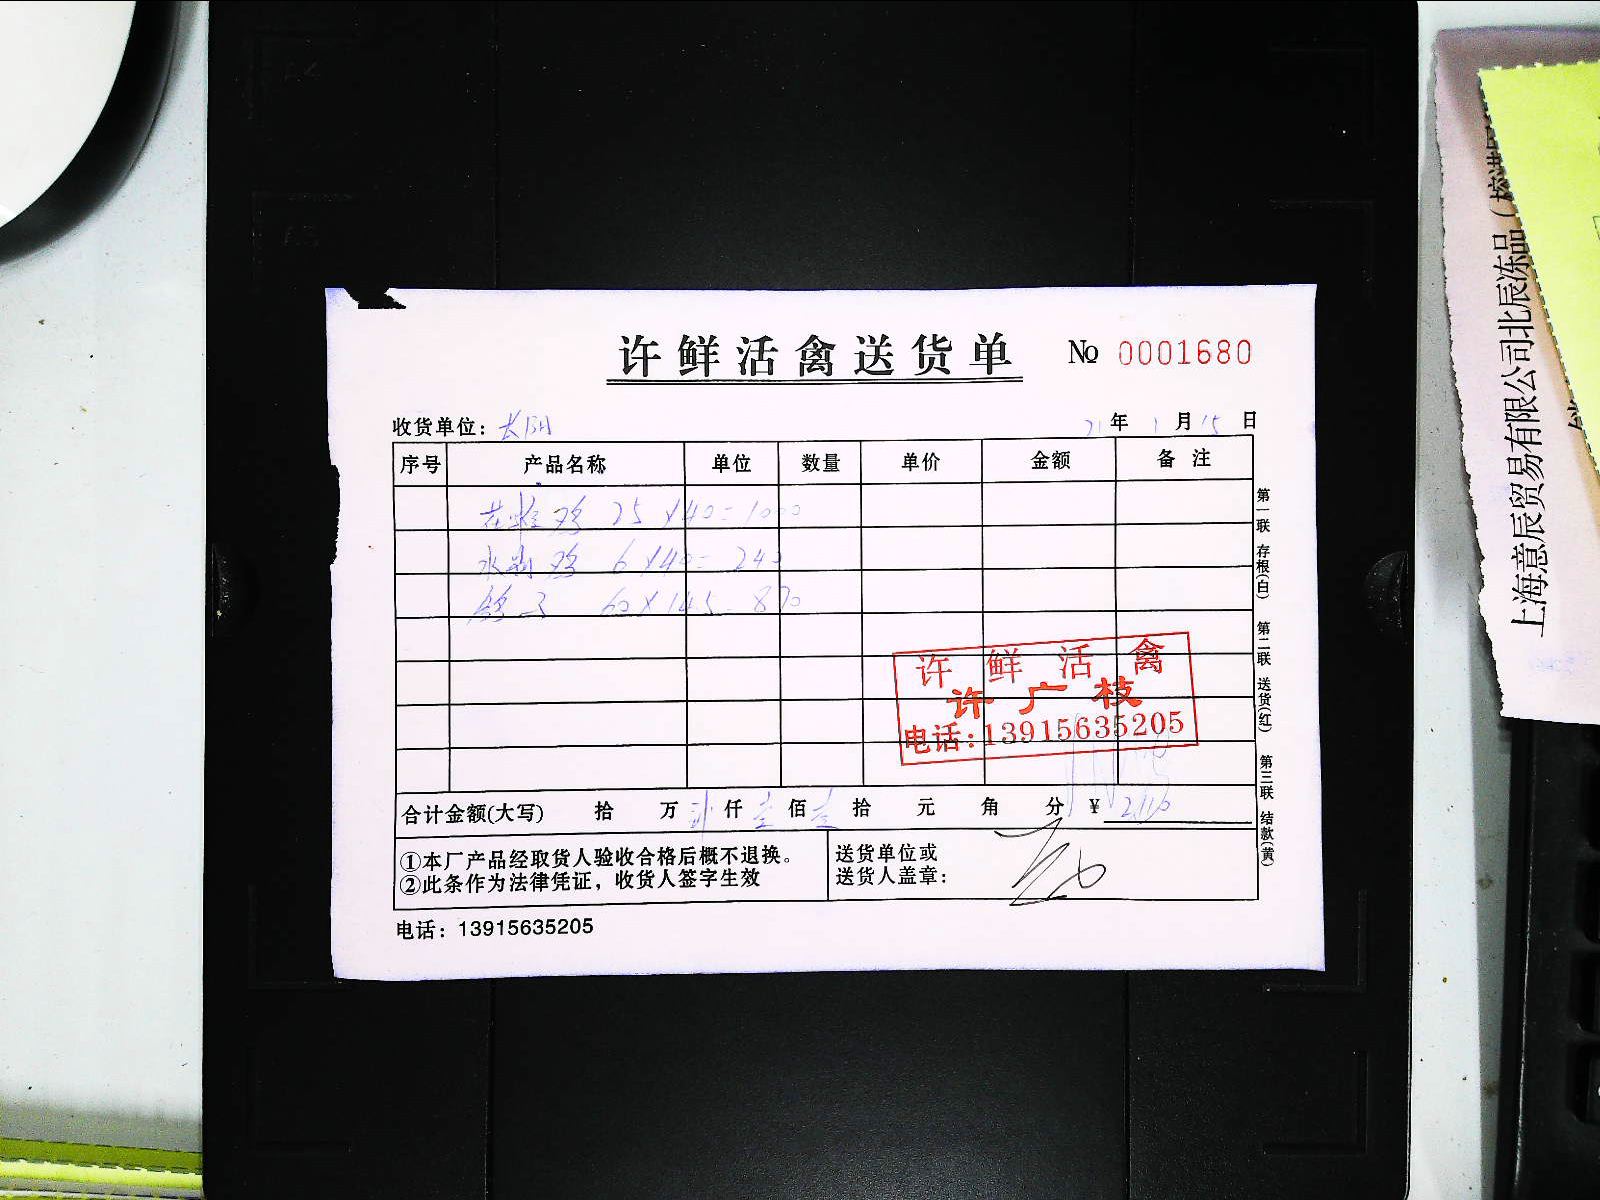 许鲜活禽送货单 № 0001680
收货单位: 长阳 21年 1月15日
序号 产品名称 单位 数量 单价 金额 备注
鸡 25×40=1000
水 鸡 6×40=240
鸽子 60×14.5=870
第一联 存根(白) 第二联 送货(红) 第三联 结款(黄)
许鲜活禽
许广枝
电话:13915635205
合计金额(大写) 拾 万 仟 壹佰 壹拾 元 角 分 ¥ 2110
①本厂产品经取货人验收合格后概不退换。
②此条作为法律凭证，收货人签字生效
送货单位或
送货人盖章:
电话: 13915635205
上海意辰贸易有限公司北辰冻品（